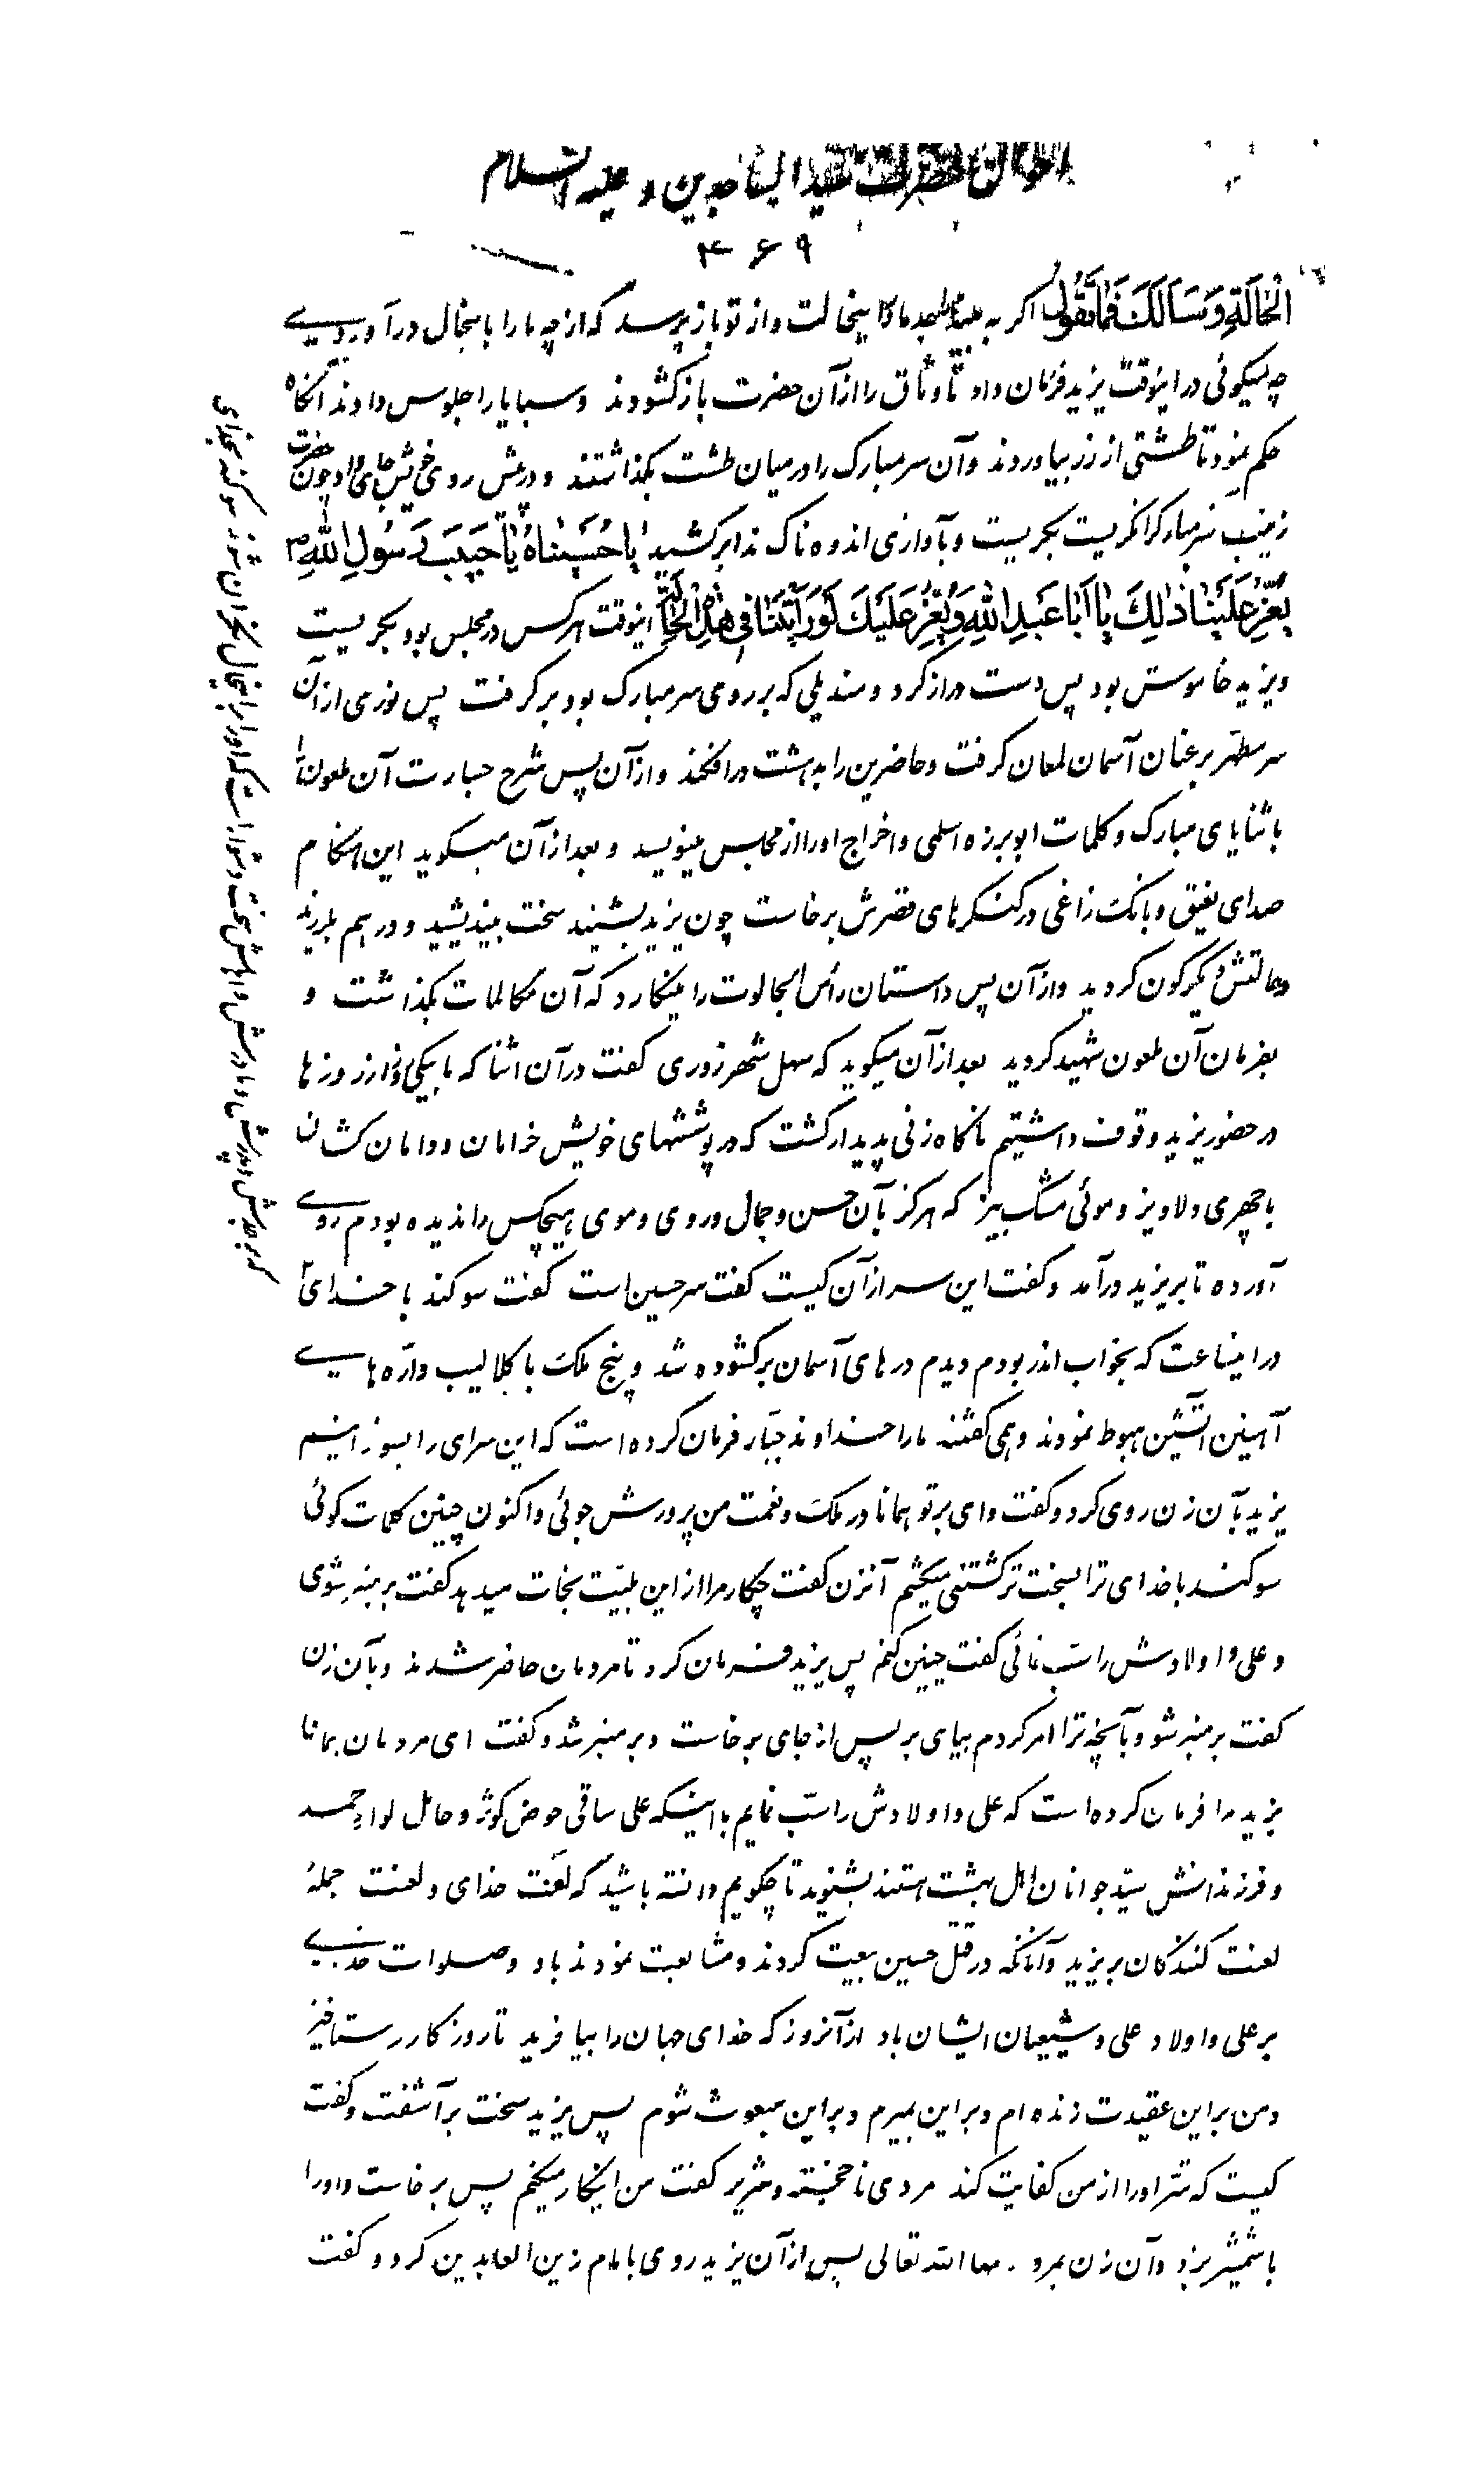 احوال حضرت سید الساجدین علیه السلام
۴۶۹
الْحٰالَةِ وَسَأَلَكَ فَمٰا تَقُولُ اگر جد ما ما را باینحالت و از تو باز پرسد که از چه ما را باینحال در آوردی
چه میگوئی در اینوقت یزید فرمان داد تا وثاق را از آن حضرت باز کشودند و سبایا را جلوس دادند آنگاه
حکم نمود تا طشتی از زر بیاوردند و آن سر مبارک را در میان طشت بگذاشتند و در پیش روی خویش جای داد چون حضرت
زینب سر مبارک را نگریست بگریست و بآوازی اندوه ناک ندا برکشید یٰا حُسَیْنٰاهُ یٰا حَبِیبَ رَسُولِ اللّٰهِ ص
یَعِزُّ عَلَیْنٰا ذٰلِكَ یٰا اَبٰا عَبْدِ اللّٰهِ وَ یَعِزُّ عَلَیْكَ لَوْ رَاَیْتَنٰا فِی هٰذِهِ الْحٰالَةِ اینوقت هر کس در مجلس بود بگریست
و یزید خاموش بود پس دست دراز کرد و مندیلی که بر روی سر مبارک بود برگرفت پس نوری از آن
سر مطهر بر عنان آسمان لمعان گرفت و حاضرین را بدهشت درافکند و از آن پس شرح جسارت آن ملعون را
با ثنایای مبارک و کلمات ابو برزه اسلمی و اخراج او را از مجلس مینویسد و بعد از آن میگوید این هنگام
صدای نعیق و بانگ زاغی در کنگرهای قصرش برخاست چون یزید بشنید سخت بیندیشید و در هم بلرزید
و حالتش دیگرگون گردید و از آن پس داستان رأس الجالوت را مینگارد که آن مکالمات بگذاشت و
بفرمان آن ملعون شهید گردید بعد از آن میگوید که سهل شهرزوری گفت در آن اثنا که ما بیکی روز از روزها
در حضور یزید وقوف داشتیم ناگاه زنی پدیدار گشت که در پوششهای خویش خرامان و دامان کشان
با چهری دلاویز و موئی مشک بیز که هرگز بآن حسن و جمال و روی و موی هیچکس را ندیده بودم روی
آورده تا بر یزید درآمد و گفت این سر از آن کیست گفت سر حسین است گفت سوگند با خدای
در اینساعت که بخواب اندر بودم دیدم درهای آسمان برکشوده شد و پنج ملک با کلالیب و اره هایی
آهنین آتشین هبوط نمودند و همی گفتند ما را خداوند جبّار فرمان کرده است که این سرای را بسوزانیم
یزید بآن زن روی کرد و گفت وای بر تو همانا در ملک و نعمت من پرورش جوئی و اکنون چنین کلمات گوئی
سوگند با خدای ترا بسخت تر کشتنی میکشم آنزن گفت چکار مرا از این بلیّت نجات میدهد گفت بر منبر شوی
و علی و اولادش را سبّ نمائی گفت چنین کنم پس یزید فرمان کرد تا مردمان حاضر شدند و بآن زن
گفت بر منبر شو و بآنچه ترا امر کردم بپای بر پس از جای برخاست و بر منبر شد و گفت ای مردمان همانا
یزید مرا فرمان کرده است که علی و اولادش را سبّ نمایم با اینکه علی ساقی حوض کوثر و حامل لواء حمد
و فرزندانش سیّد جوانان اهل بهشت هستند بشنوید تا چگویم دانسته باشید که لعنت خدای و لعنت جملهٔ
لعنت کنندگان بر یزید و آنانکه در قتل حسین بیعت کردند و مشایعت نمودند باد و صلوات خدای
بر علی و اولاد علی و شیعیان ایشان باد از آنروز که خدای جهان را بیافرید تا روزگار رستاخیز
و من بر این عقیدت زنده ام و بر این بمیرم و بر این مبعوث شوم پس یزید سخت برآشفت و گفت
کیست که شرّ او را از من کفایت کند مردی ناخجسته و شریر گفت من اینکار میکنم پس برخاست و او را
با شمشیر بزد و آن زن بمرد . رحمها الله تعالی پس از آن یزید روی با امام زین العابدین کرد و گفت
که بر جدش و پدرش و مادرش و اهلش سخت و دشوار است که او را بر اینحال نگران شوند سوگند بخدای